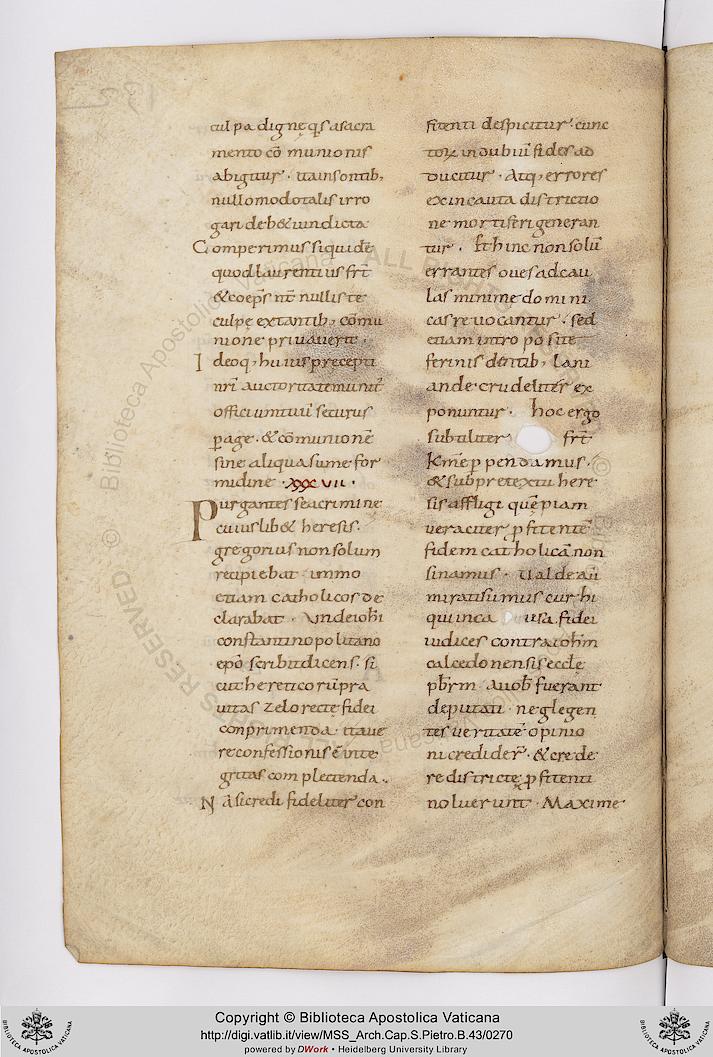 culpa dignę qs asacra
mento cō munionis
abigitur . ita insontib;
nullomodo talis irro
gari deb& uindicta
Comperimus siquidē
quod laurentius frt̄
& coep̄s nt̄ nullis te
culpę extantib; cōmu
nione priuauerit .
Ideoq; huius precepti
nr̄i auctoritate munit̄
officium tuū securus
p̱age . & cōmunionē
sine aliqua sume for
midine . xxxvii .
Purgantes se a crimine
cuiuslib& heresis .
gregorius non solum
recipiebat . immo
etiam catholicos de
clarabat . Unde ioh̄i
constantinopolitano
ep̄o scribit dicens . si
cut hereticorū pra
uitas zelo rectę fidei
conprimenda . ita ue
re confessionis ē inte
gritas complectenda .
Nā si credi fideliter con
fitenti despicitur . cunc
torꝝ in dubiū fides ad
ducitur . Atq; errores
ex incauta districtio
ne mortiferi generan
tur . Et hinc non solū
errantes oues ad cau
las minime domini
cas reuocantur . sed
etiam intro positę
ferinis dentib; lani
andę crudeliter ex
ponuntur . hoc ergo
subtiliter frt̄
kmē p̱pendamus .
& sub pretextu here
sis affligi quēpiam
ueraciter ꝓfitentē
fidem catholicā non
sinamus . Ualde aū
miratisumus cur hi
qui in ca usa fidei
iudices contra ioh̄m
calcedonensis eccłę
pb̄rm . a uob̄ fuerant
deputati . neglegen
tes ueritatē opinio
ni crediderr̄ . & crede
re districtę ꝓfitenti
noluerunt . Maxime
Copyright © Biblioteca Apostolica Vaticana
http://digi.vatlib.it/view/MSS_Arch.Cap.S.Pietro.B.43/0270
powered by DWork • Heidelberg University Library